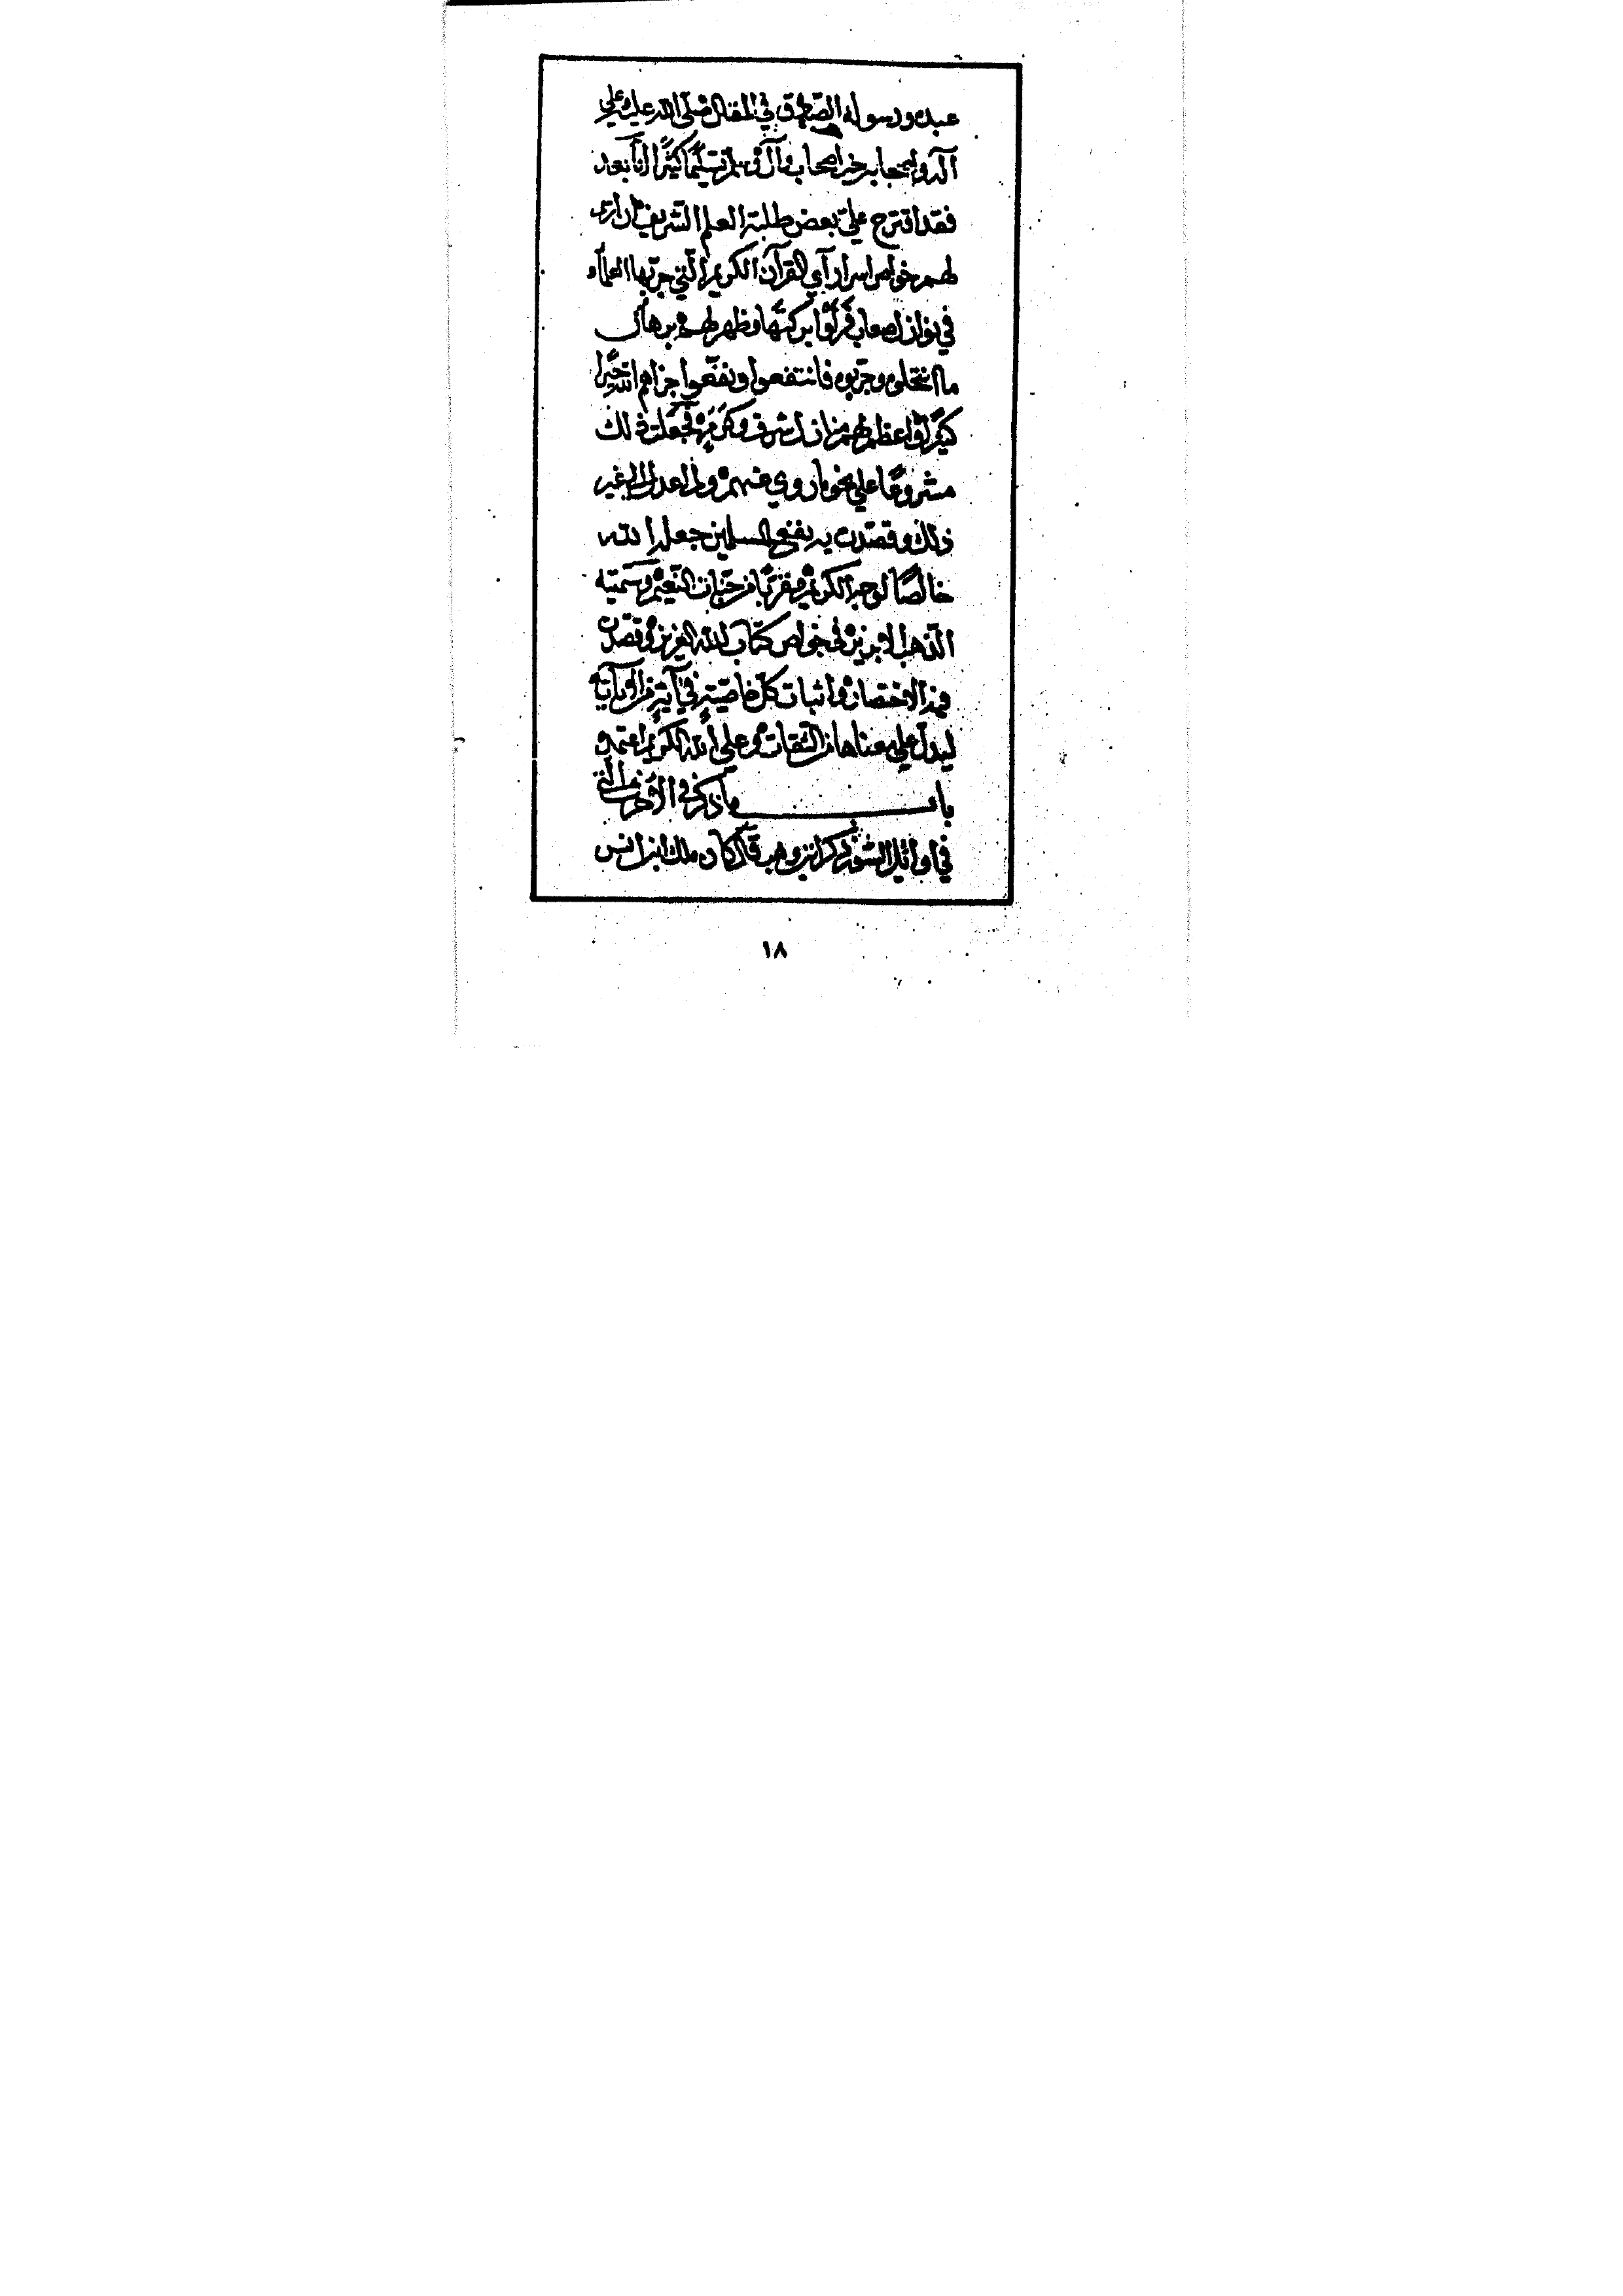 عبده ورسوله الصادق في المقال صلى الله عليه وعلى
آله وأصحابه خير أصحاب وآل وسلم تسليمًا كثيرًا أما بعد
فقد اقترح علي بعض طلبة العلم الشريف أن أرى
لهم خواص أسرار آي القرآن الكريم التي جربها العلماء
في نوازل صعاب فرأوا بركتها وظهر لهم برهان
ما انتحلوه وجربوه فانتفعوا ونفعوا جزاهم الله خيرا
كثيرا وأعظم لهم شرف وكرمه فجعلت ذلك
مشروعًا على نحو ما روي عنهم ولم أعدل إلى غير
ذلك وقصدت به نفع المسلمين جعله الله
خالصًا لوجهه الكريم مقربًا من جنات النعيم وسميته
الذهب الابريز في خواص كتاب الله العزيز وقصدت
فيه الاختصار وإثبات كل خاصية في آية من آياته
ليدل على معناها من الثقات وعلى الله الكريم أعتمد
باب ما ذكر في الأحرف التي
في أوائل السور ذكر ابن وهب قال كان ملك ابن انس
١٨